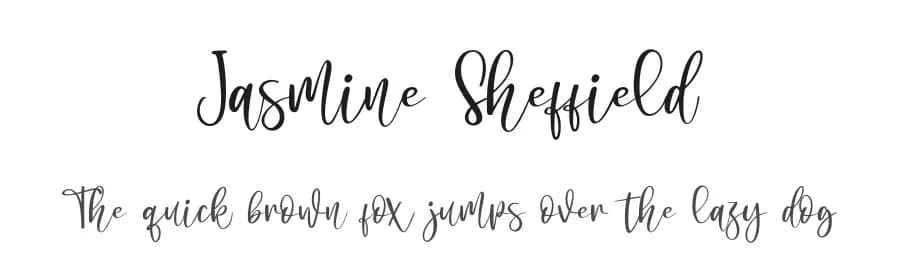 Jasmine Sheffield
The quick brown fox jumps over the lazy dog